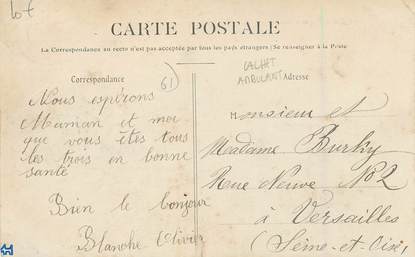 lot
CARTE POSTALE
La Correspondance au recto n'est pas acceptée par tous les pays étrangers (Se renseigner à la Poste
Correspondance
61
CACHET
AMBULANT
Adresse
Nous espérons
Maman et moi
que vous êtes tous
les trois en bonne
santé
Bien le bonjour
Blanche Olivier
Monsieur et
Madame Burky
Rue Neuve No 2
à Versailles
(Seine-et-Oise)